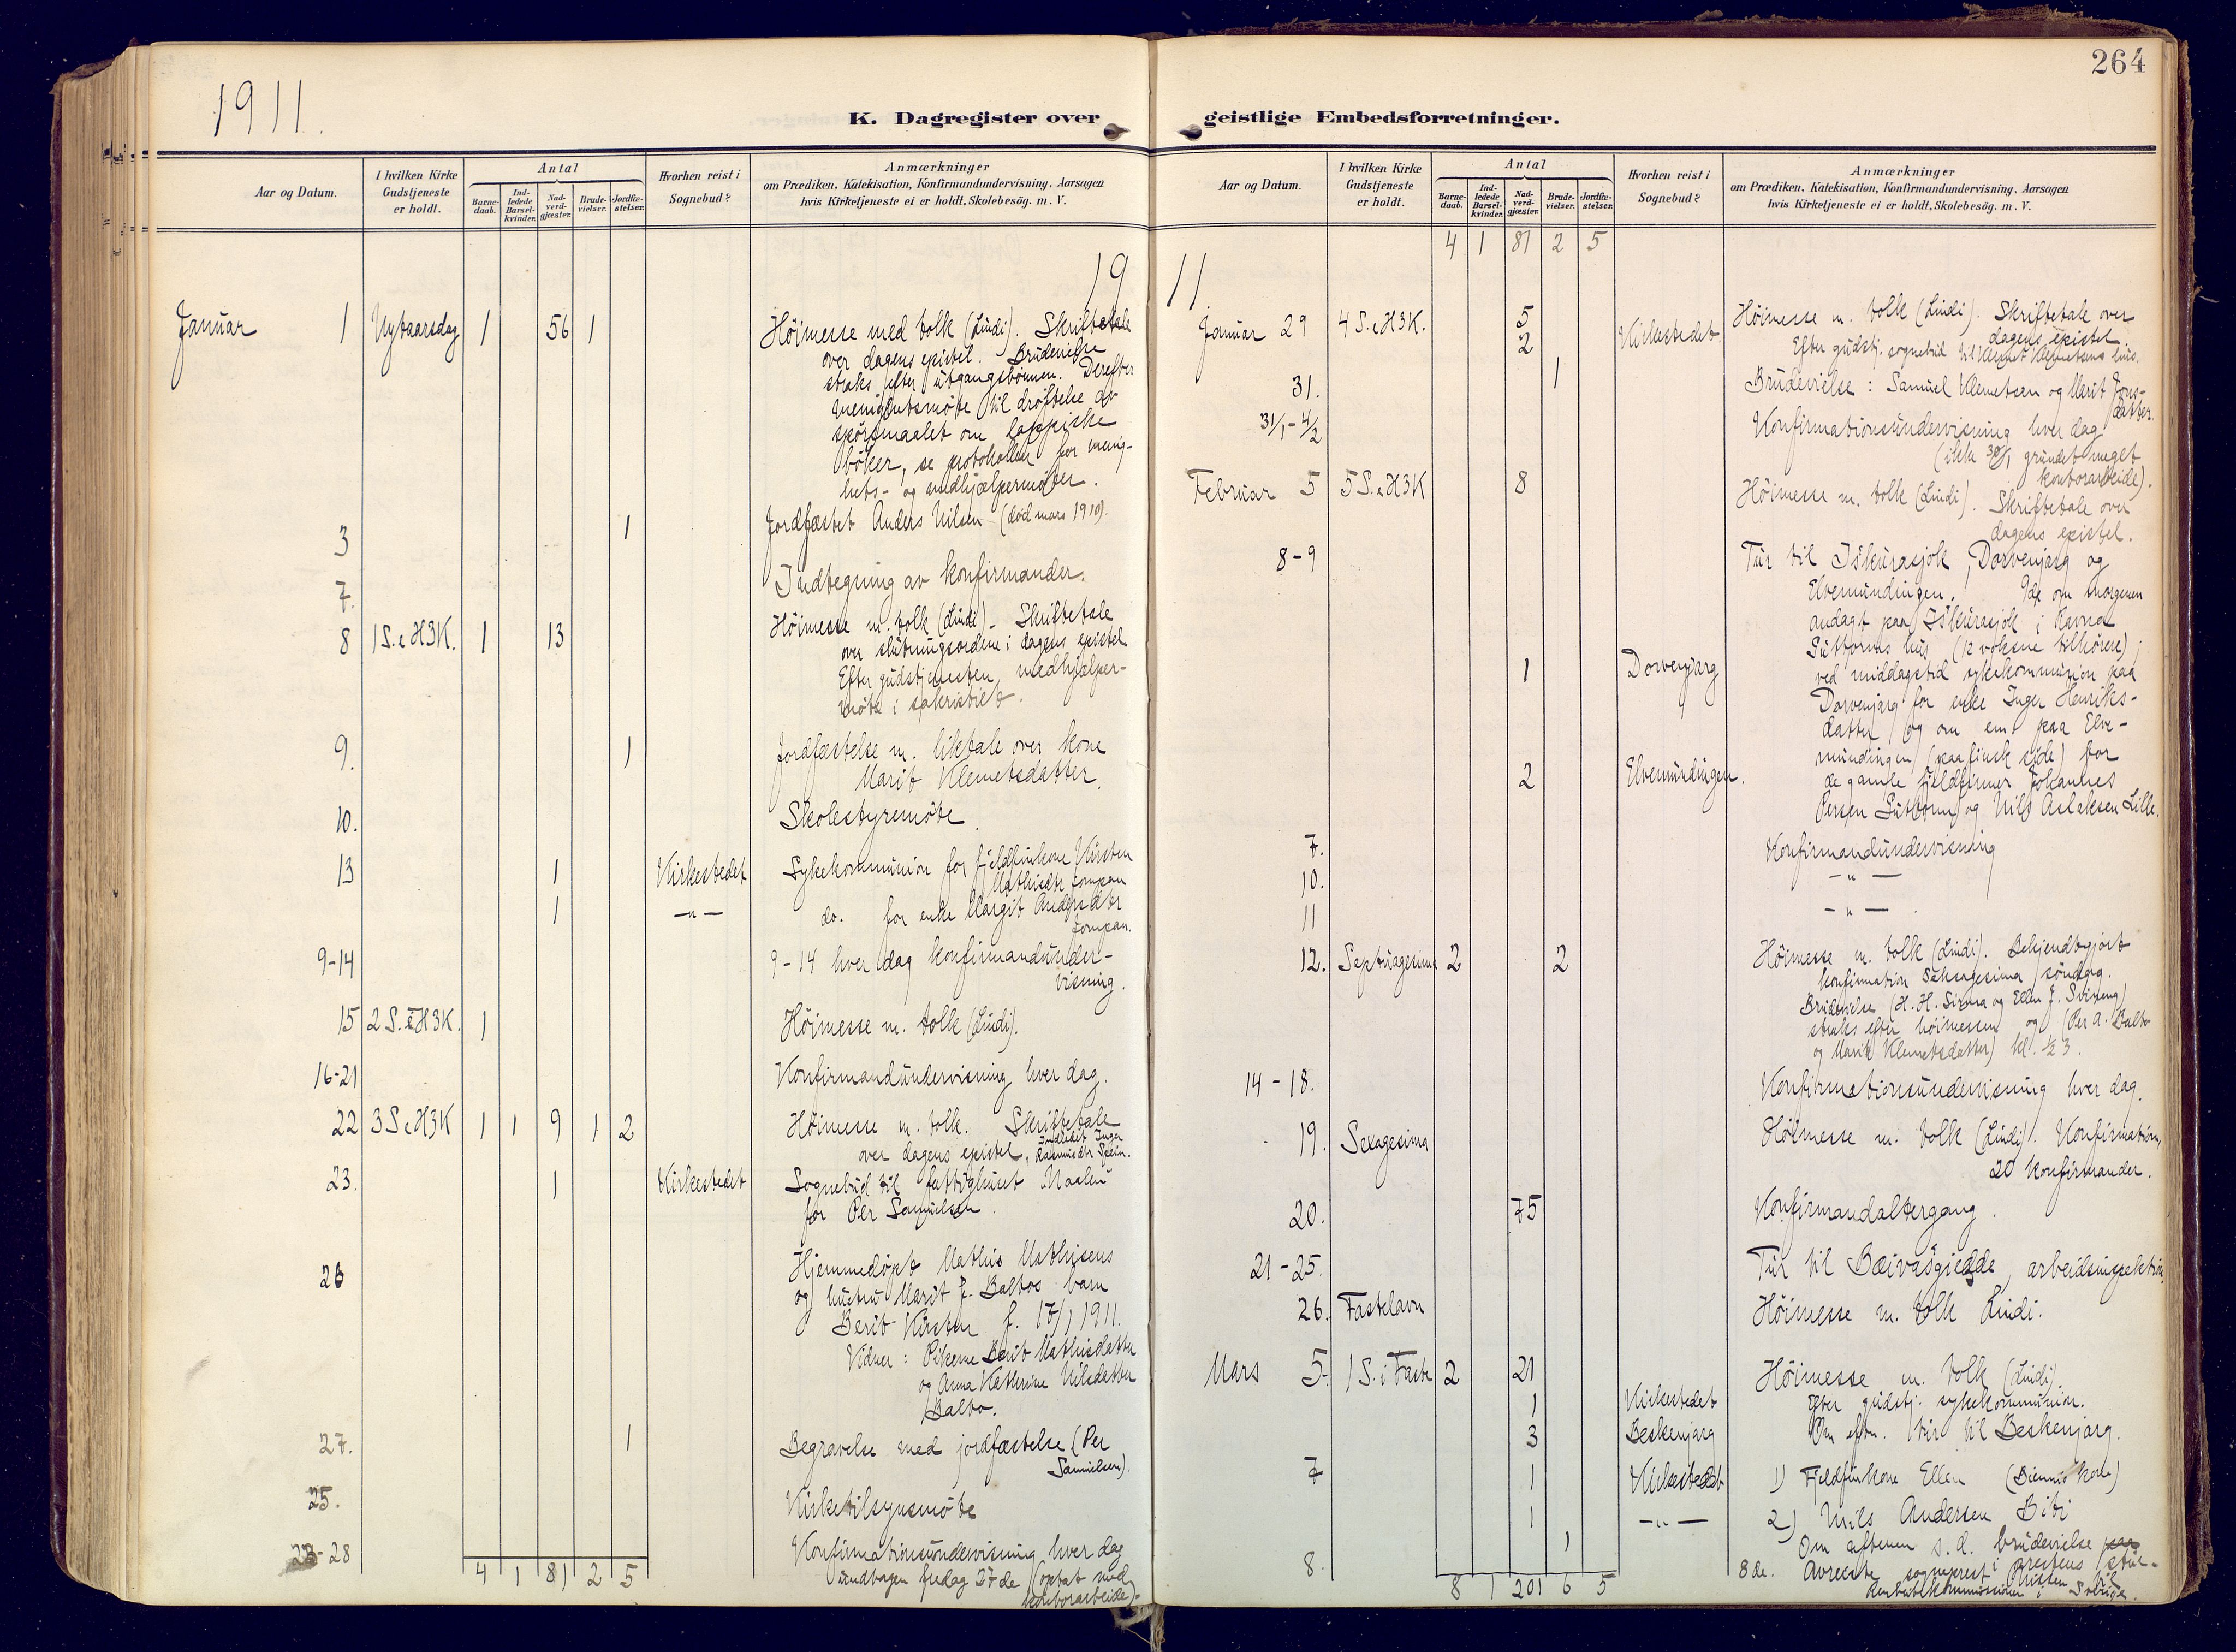 264
1911.
K. Dagregister over
geistlige Embedsforretninger.
Aar og Datum.
I hvilken Kirke
Gudstjeneste
er holdt.
Antal
Barne-
daab.
Ind-
ledede
Barsel-
kvinder.
Nad-
verd-
gjæster.
Brude-
vielser.
Jordfæ-
stelser.
Hvorhen reist i
Sognebud?
Anmærkninger
om Prædiken, Katekisation, Konfirmandundervisning, Aarsagen
hvis Kirketjeneste ei er holdt, Skolebesög. m. V.
19
Januar 1 Nytaarsdag 1 56 1 Höimesse med tolk (Lindi). Skriftetale
over dagens epistel. Brudevielse
straks efter utgangsbönnen. Derefter
menighetsmöte til dröftelse av
spörsmaalet om lappiske
böker, se protokollen for menig-
hets- og medhjælpermöter.
3 1 Jordfæstet Anders Nilsen (död mars 1910).
7. Indtegning av konfirmander.
8 1 S. e H3K. 1 13 Höimesse m. tolk (Lindi) - Skriftetale
over slutningsordene i dagens epistel
Efter gudstjenesten medhjælper-
möte i sakristiet.
9. 1 Jordfæstelse m. liktale over kone
Marit Klemetsdatter.
10. Skolestyremöte
13 1 Kirkestedet Sykekommunion for fjeldfinkone Kirsten
Mathisdtr Sompan
1 -"- do. for enke Margit Andersdtr
Jompan.
9-14 9-14 hver dag konfirmandunder-
visning.
15 2 S. e H3K. 1 Höimesse m. tolk (Lindi).
16-21 Konfirmandundervisning hver dag.
22 3 S e H3K 1 1 9 1 2 Höimesse m. tolk. Skriftetale
over dagens epistel, Indledet Inga
Rasmusdtr Spein.
23. 1 Kirkestedet Sognebud til fattighuset Maalen
for Per Samuelsen.
26 Hjemmedöpt Mathis Mathisens
og hustru Marit P. Baltos barn
Berit Kirsten f. 17/1 1911.
Vidner: Pikerne Berit Mathisdatter
og Anna Kathrine Nilsdatter
Balto.
27. 1 Begravelse med jordfæstelse (Per
Samuelsen).
25. Kirketilsynsmöte
23-28 Konfirmationsundervisning hver dag
undtagen fredag 27de (optat med
kontorarbeide).
4 1 81 2 5
Aar og Datum.
I hvilken Kirke
Gudstjeneste
er holdt.
Antal
Barne-
daab.
Ind-
ledede
Barsel-
kvinder.
Nad-
verd-
gjæster.
Brude-
vielser.
Jordfæ-
stelser.
Hvorhen reist i
Sognebud?
Anmærkninger
om Prædiken, Katekisation, Konfirmandundervisning, Aarsagen
hvis Kirketjeneste ei er holdt, Skolebesög. m. V.
4 1 81 2 5
11.
Januar 29 4 S. e H3K. 5 Höimesse m. tolk (Lindi). Skriftetale over
dagens epistel.
2 Kirkestedet. Efter gudstj. sognebud til Klemet Klemetsens hus.
31. 1 Brudevielse: Samuel Klemetsen og Marit Jons-
datter.
31/1-4/2 Konfirmationsundervisning hver dag
(ikke 30/1 grundet meget
kontorarbeide).
Februar 5 5 S. e H3K 8 Höimesse m. tolk (Lindi). Skriftetale over
dagens epistel.
8-9 Tur til Iskurasjok, Dorvenjarg og
Elvemundingen. 9de om morgenen
andagt paa Iskurasjok i Ravna
Guttorms hus (12 voksne tilhörere);
1 Dorvenjarg ved middagstid sykekommunion paa
Dorvenjarg for enke Inger Henriks-
datter og om em. paa Elve-
mundingen (paa finsk side) for
2 Elvemundingen. de gamle fjeldfinner Johannes
Persen Guttorm og Nils Aslaksen Lille.
7. Konfirmandundervisning
10. -"-
11 -"-
12. Septuagesima 2 2 Höimesse m. tolk (Lindi). Bekjendtgjort
konfirmation Seksagesima söndag.
Brudevielse (H. H. Sirma og Ellen J. )
straks efter höimessen og (Per A. Balto
og Marit Klemetsdatter) kl. ½ 3.
14-18. Konfirmationsundervisning hver dag.
19. Sexagesima Höimesse m. tolk (Lindi). Konfirmation,
20 konfirmander.
20. 75 Konfirmandaltergang.
21-25. Tur til Bæivasgiedde, arbeidsinspektion.
26. Fastelavn Höimesse m. tolk Lindi.
Mars 5. 1 S. i Faste 2 21 Höimesse m. tolk (Lindi).
1 Kirkestedet Efter gudstj. sykekommunion.
3 Beskenjarg Om eftm. tur til Beskenjarg.
7 1 Kirkestedet 1) Fjeldfinkone Ellen (Biennis kone)
1 -"- 2) Nils Andersen Biti
1 Om aftenen s. d. brudevielse
i prestens stue.
8. 8de. Avreiste sogneprest Nissen til
Renbeitekommissionen i Sverige.
8 1 201 6 5